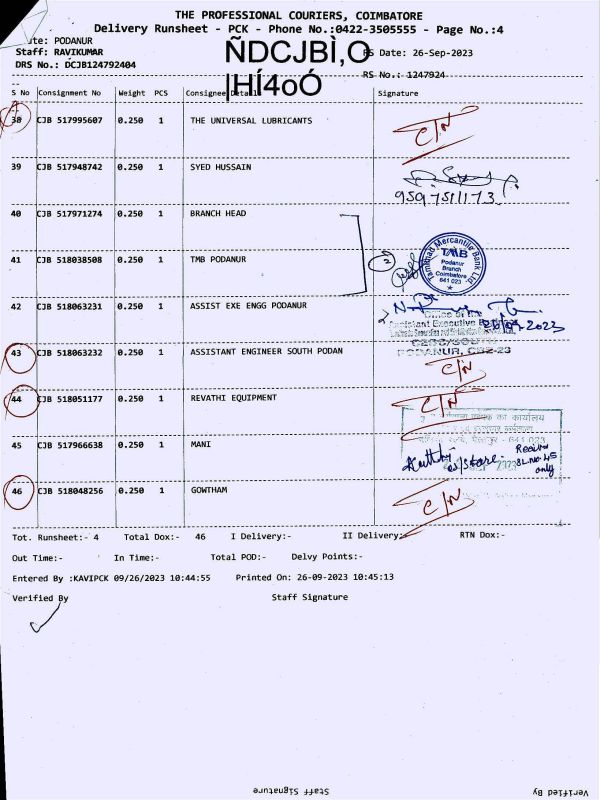 THE PROFESSIONAL COURIERS, COIMBATORE
Delivery Runsheet - PCK - Phone No.:0422-3505555 - Page No.:4
PODANUR
Staff: RAVIKUMAR
RS Date: 26-Sep-2023
DRS No.: DCJB124792404
ÑDCJBÌ,O
|HÍ4oÓ
RS No.: 1247924
S No Consignment No Weight PCS Consignee Details Signature
38 CJB 517995607 0.250 1 THE UNIVERSAL LUBRICANTS C/N
39 CJB 517948742 0.250 1 SYED HUSSAIN
9597511173
40 CJB 517971274 0.250 1 BRANCH HEAD
41 CJB 518038508 0.250 1 TMB PODANUR
Tamilnad Mercantile Bank Ltd.
TMB
Podanur
Branch
Coimbatore
641 023
42 CJB 518063231 0.250 1 ASSIST EXE ENGG PODANUR
Office of the
Assistant Executive
26/09/2023
CZOC/SOUTH
PODANUR, CBE-23
43 CJB 518063232 0.250 1 ASSISTANT ENGINEER SOUTH PODAN C/N
44 CJB 518051177 0.250 1 REVATHI EQUIPMENT C/N
का कार्यालय
641 023
45 CJB 517966638 0.250 1 MANI
SL.No 45
only
2023
46 CJB 518048256 0.250 1 GOWTHAM C/N
Tot. Runsheet:- 4 Total Dox:- 46 I Delivery:- II Delivery:- RTN Dox:-
Out Time:- In Time:- Total POD:- Delvy Points:-
Entered By :KAVIPCK 09/26/2023 10:44:55 Printed On: 26-09-2023 10:45:13
Verified By Staff Signature
Staff Signature Verified By